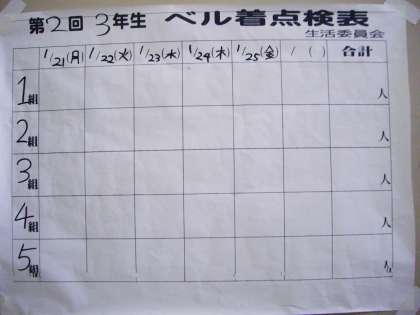 第2回 3年生 ベル着点検表
生活委員会
1/21(月) 1/22(火) 1/23(水) 1/24(木) 1/25(金) / ( ) 合計
1組 人
2組 人
3組 人
4組 人
5組 人